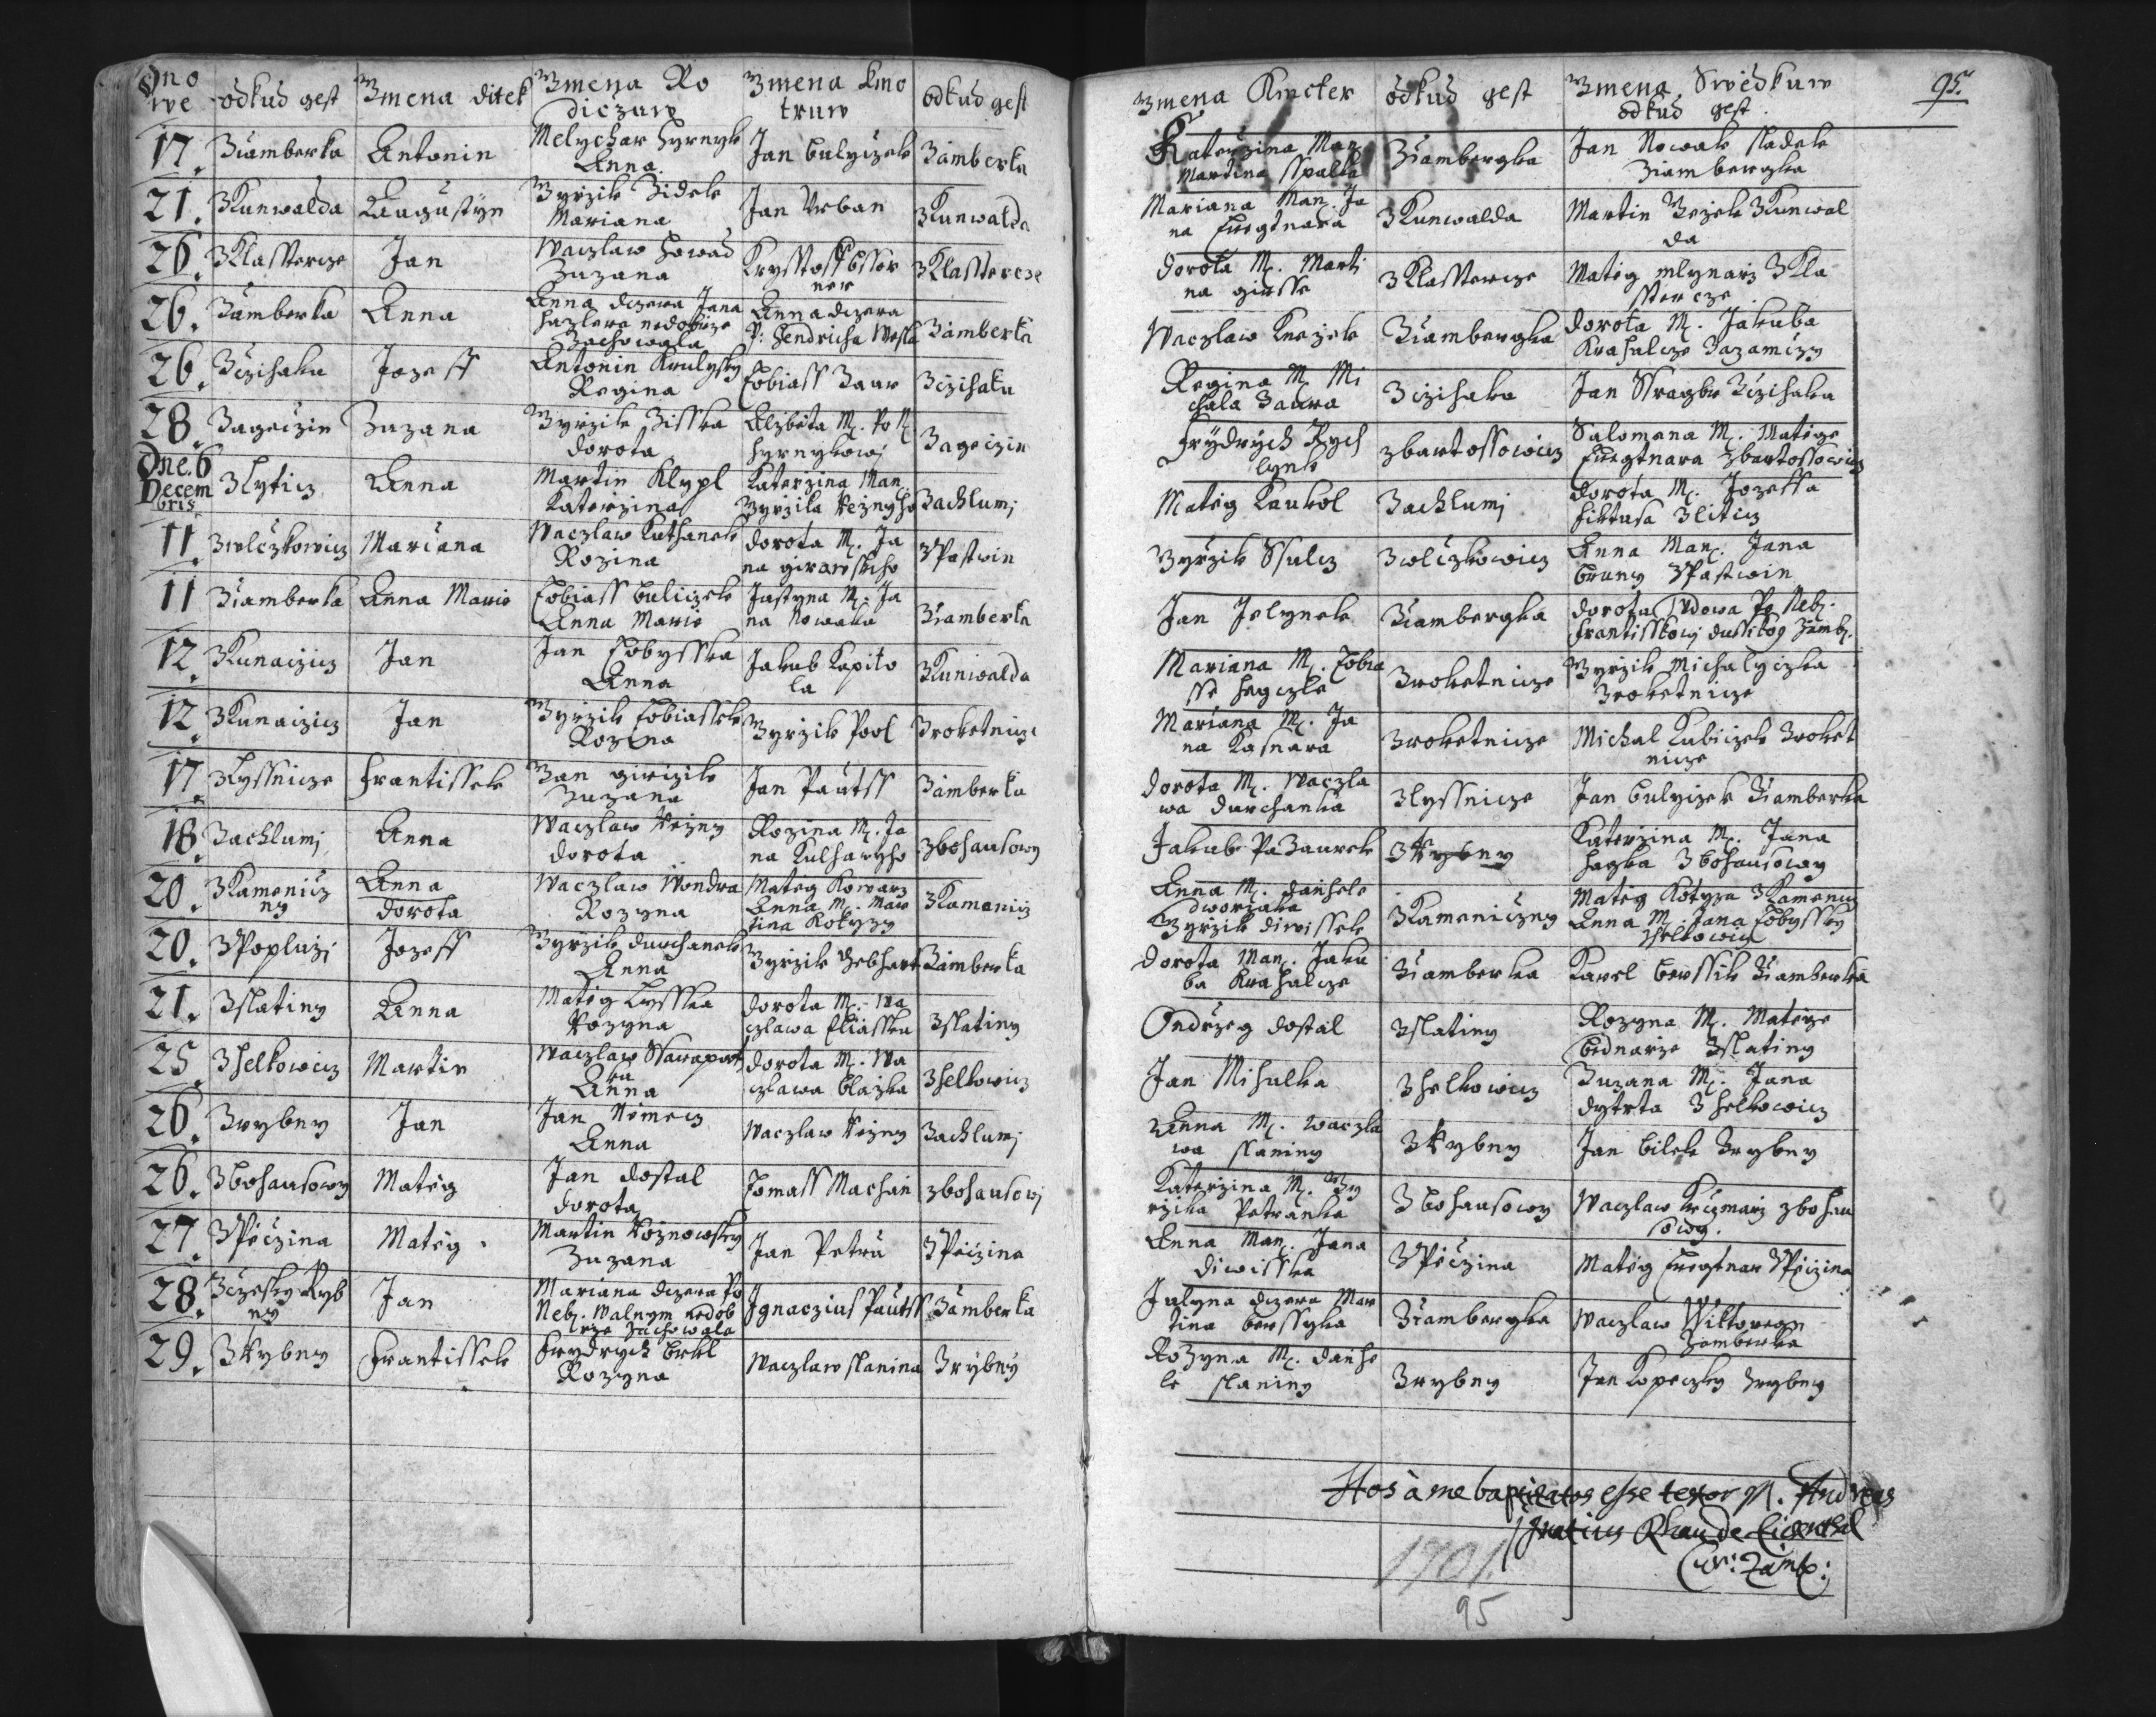 Dno
we
odkud gest
Zmena ditek
Zmena Ro
diczuw
Zmena kmo
truw
odkud gest
17.
Ziamberka
Antonin
Melychar Hyrnyk
Anna.
Jan Bulyczek
Zamberka
21.
Z Kunwalda
Augustyn
Gyrzik Zidek
Mariana
Jan Urban
Z Kunwalda
26.
Z Klassterze
Jan
Waczlaw Howad
Zuzana
Z Klassterze
26.
Zamberka
Anna
Anna dczera Jana
nedobrze
zachowala
Anna dczera
P: Hendricha
Zamberka
26.
Zczihaku
Jozeff
Antonin
Regina
Tobiass Baur
Zczihaku
28.
Zageczin
Zuzana
Gyrzik Zisska
Dorota
Alzbieta M.
Zageczin
Dne. 6
Decem
bris
Z Lyticz
Anna
Martin Klypl
Katerzina
Katerzina Man.
Gyrzika Reznyho
Zachlumj
11.
Z wlczkowicz
Mariana
Waczlaw Kuthanek
Rozina
Dorota M. Ja
na
Z Pastwin
11
Ziamberka
Anna Marie
Tobiass Buliczek
Anna Marie
Justyna M. Ja
na Nowaka
Ziamberka
12.
Z Kunaczicz
Jan
Jan Tobysska
Anna
Jakub Kapito
la
Z Kuniwalda
12.
Z Kunaczicz
Jan
Gyrzik Tobiassek
Rozina
Gyrzik Pool
Z roketnicze
17.
Z Lyssnicze
Frantissek
Jan girzik
Zuzana
Jan Pautss
Zamberka
18.
Zachlumj
Anna
Waczlaw Rezny
Dorota
Rozina M. Ja
na Kulhawyho
Z bohausowy
20.
Z Kamenicz
ny
Anna
Dorota
Waczlaw Wondra
Rozyna
Mateg Kowarz
Anna M. Mar
tina Kotyzy
Z Kamenicz
20.
Z Popluzj
Jozeff
Gyrzik Durchanek
Anna
Gyrzik Gebhart
Zamberka
21.
Z slatiny
Anna
Mateg Lysska
Rozyna
Dorota M. Wa
czlawa Eliasska
Z slatiny
25.
Z helkowicz
Martin
Waczlaw
ka
Anna
Dorota M. Wa
czlawa Blazka
Z helkowicz
26.
Z rybny
Jan
Jan Nemecz
Anna
Waczlaw Rezny
Zachlumj
26.
Z bohausowy
Mateg
Jan Dostal
Dorota
Tomass Machan
Z bohausowj
27.
Z Peczina
Mateg.
Martin Roznowsky
Zuzana
Jan Petru
Z Peczina
28.
Z czesky Ryb
ny
Jan
Mariana dczera Po
Neb. Walnym nedob
rze zachowala
Jgnaczius Pautss
Zamberka
29.
Z Rybny
Frantissek
Frydrych Brkl
Rozyna
Waczlaw slanina
Z rybny
Zmena Kmoter
odkud gest
Zmena Swedkuw
odkud gest.
95.
Katerzina Man.
Martina Sspalka
Ziambergka
Jan Nowak sladek
Ziambergka
Mariana Man. Ja
na Fuegtnara
Z Kunwalda
Martin Bezek Z Kunwal
da
Dorota M. Marti
na girsse
Z Klassterze
Mateg mlynarz Z Kla
ssterze
Waczlaw Knezek
Ziambergka
Dorota M. Jakuba
Krahulcze Zazamczy
Regina M. Mi
chala Baura
Z czihaku
Jan Zczihaka
Frydrych Rych
lynk
Z bartossowicz
Salomena M. Matege
Fuegtnara Z bartossowicz
Mateg Kaukol
Zachlumj
Dorota M. Jozeffa
Z Liticz
Gyrzik Ssulcz
Z wlczkowicz
Anna Man. Jana
Bruny Z Pastwin
Jan Jelynek
Ziambergka
Dorota Wdowa Po Neb.
Frantisskowj Zamb.
Mariana M. Tobia
sse
Z roketnicze
Gyrzik Michalyczka
Z roketnicze
Mariana M. Ja
na Kasnara
Z roketnicze
Michal Kubiczek Z roket
nicze
Dorota M. Waczla
wa Durchanka
Z Lyssnicze
Jan Bulyczek Ziamberka
Jakub Pazaurek
Z Rybny
Katerzina M. Jana
Hagka Z bohausowy
Anna M. Danhele
dworzaka
Gyrzik Diwissek
Z Kameniczny
Mateg Kotyza Z Kamenicz
Anna M. Jana Tobyssky
Z helkowicz
Dorota Man. Jaku
ba Krahulcze
Ziamberka
Karel Berssik Ziamberka
Ondrzeg Dostal
Z slatiny
Rozyna M. Matege
Bednarze Z slatiny
Jan Mihulka
Z helkowicz
Zuzana M. Jana
Dytrta Z helkowicz
Anna M. Waczla
wa slaniny
Z Rybny
Jan Bilek Z rybny
Katerzina M. Gy
rzika Petranka
Z bohausowy
Waczlaw Krczmarz Z bohau
sowy.
Anna Man. Jana
Diwisska
Z Peczina
Mateg Fuegtnar Z Peczina
Julyna dczera Mar
tina Berssyka
Ziambergka
Waczlaw Wiktoryn
Zamberka
Rozyna M. Danhe
le slaniny
Z rybny
Jan Kopeczky Z rybny
Hos à me baptizatos esse testor P. Andreas
Ignatius
Cur: Zamb:
1701.
95